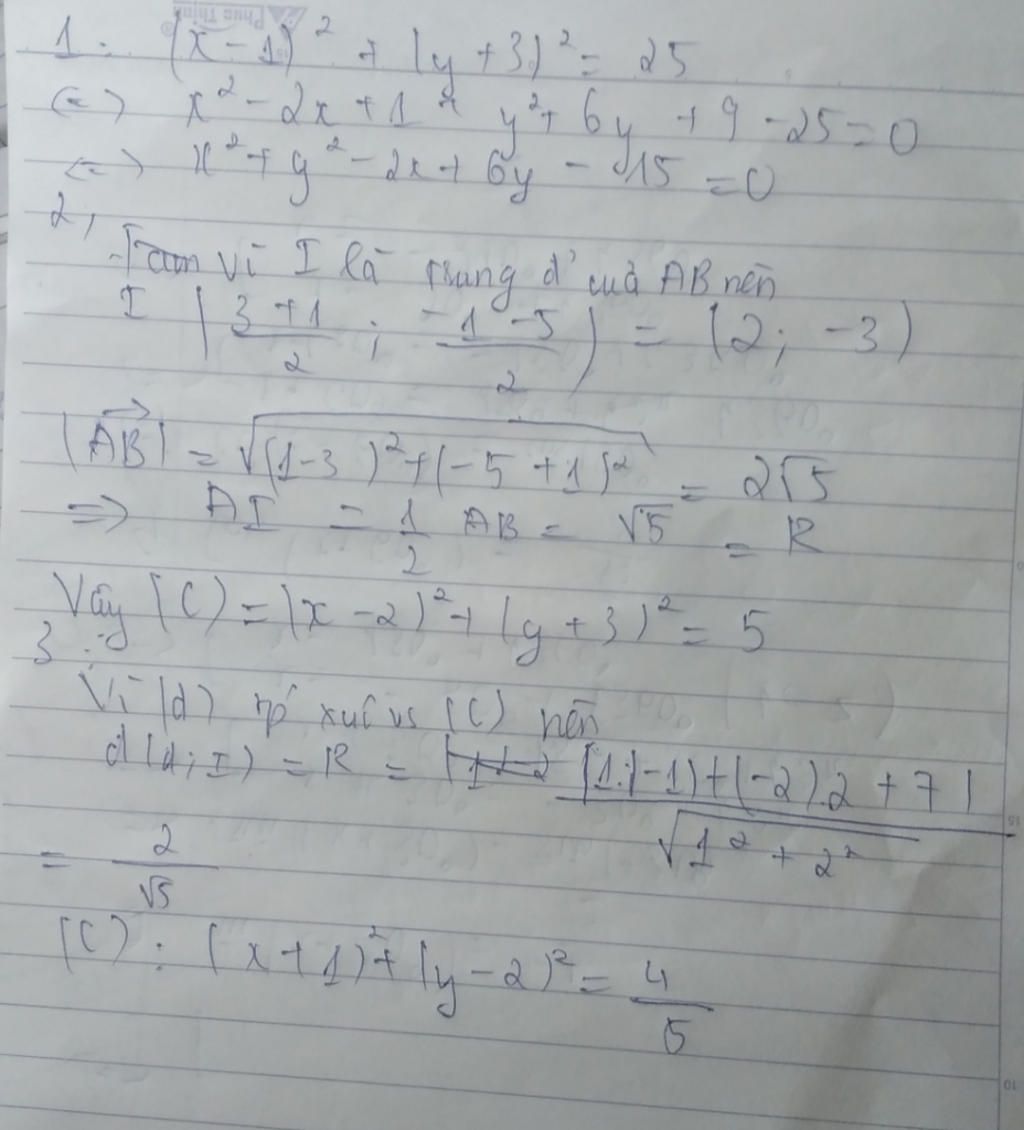 Phúc Thịnh
1. (x-1)² + (y+3)² = 25
<=> x² - 2x + 1 + y² + 6y + 9 - 25 = 0
<=> x² + y² - 2x + 6y - 15 = 0
2,
Vì I là trung đ' của AB nên
I (3+1/2 ; -1-5/2) = (2; -3)
|AB→| = √((1-3)² + (-5+1)²) = 2√5
=> AI = 1/2 AB = √5 = R
Vậy (C) = (x-2)² + (y+3)² = 5
3:
Vì (d) tp xúc vs (C) nên
d(d; I) = R = |1.(-1)+(-2).2+7| / √(1²+2²)
= 2/√5
(C): (x+1)² + (y-2)² = 4/5